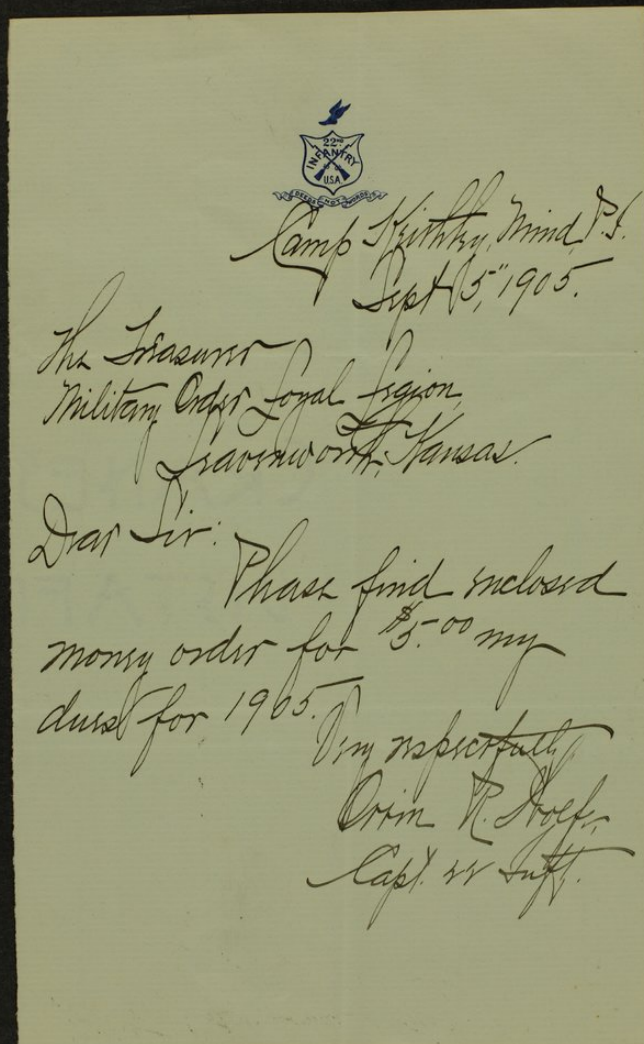 22ND
INFANTRY
U.S.A
DEEDS NOT WORDS
Camp Keithley, Mind, P.I.
Sept 5," 1905.
The Treasurer
Military Order Loyal Legion,
Leavenworth, Kansas.
Dear Sir:
Please find enclosed
money order for $5.00 my
dues for 1905.
Very respectfully
Orrin R. Wolfe,
Capt. 22 Inft.